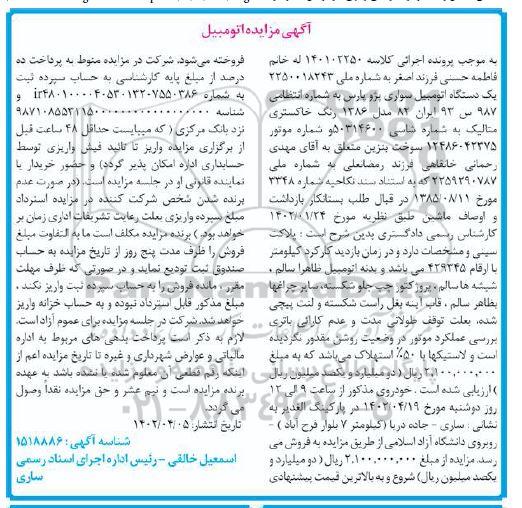 آگهی مزایده اتومبیل
به موجب پرونده اجرائی کلاسه ۱۴۰۱۰۲۲۵۰ له خانم
فاطمه حسنی فرزند اصغر به شماره ملی ۲۲۵۰۰۱۸۲۴۳
یک دستگاه اتومبیل سواری پژو پارس به شماره انتظامی
۹۸۷ س ۹۳ ایران ۸۲ مدل ۱۳۸۶ رنگ خاکستری
متالیک به شماره شاسی ۵۰۳۱۴۶۰۰ و شماره موتور
۱۲۴۸۶۰۴۲۳۷۵ سوخت بنزین متعلق به آقای مهدی
رحمانی خانقاهی فرزند رمضانعلی به شماره ملی
۲۲۵۹۲۹۰۷۸۷ که به استناد سند نکاحیه شماره ۳۳۴۸
مورخ ۱۳۸۵/۰۸/۱۱ در قبال طلب بستانکار بازداشت
و اوصاف ماشین طبق نظریه مورخ ۱۴۰۲/۰۱/۲۴
کارشناس رسمی دادگستری بدین شرح است : پلاکت
سینی و مشخصات دارد و در زمان بازدید کارکرد کیلومتر
با ارقام ۴۲۹۳۴۵ می باشد و بدنه اتومبیل ظاهرا سالم ،
شیشه ها سالم ، پروژکتور چپ جلو شکسته، سایر چراغها
بظاهر سالم ، قاب آینه بغل راست شکسته و لنت پیچی
شده، بعلت توقف طولانی مدت و عدم کارائی باتری
بررسی عملکرد موتور در وضعیت روشن مقدور نگردیده
است و لاستیکها با ۵۰٪ استهلاک می‌باشد که به مبلغ
۲,۱۰۰,۰۰۰,۰۰۰ ریال ( دو میلیارد و یکصد میلیون ریال
) ارزیابی شده است . خودروی مذکور از ساعت ۹ الی ۱۲
روز دوشنبه مورخ ۱۴۰۲/۰۴/۱۹ در پارکینگ الغدیر به
نشانی : ساری - جاده دریا (کیلومتر ۷ بلوار فرح آباد ) -
روبروی دانشگاه آزاد اسلامی از طریق مزایده به فروش می
رسد. مزایده از مبلغ ۲,۱۰۰,۰۰۰,۰۰۰ ریال ( دو میلیارد و
یکصد میلیون ریال) شروع و به بالاترین قیمت پیشنهادی
فروخته می‌شود. شرکت در مزایده منوط به پرداخت ده
درصد از مبلغ پایه کارشناسی به حساب سپرده ثبت
به شماره ir۴۸۰۱۰۰۰۰۴۰۵۳۰۱۳۲۰۷۵۵۰۳۸۶ و
شناسه
نزد بانک مرکزی ( که میبایست حداقل ۴۸ ساعت قبل
از برگزاری مزایده واریز تا تائید فیش واریزی توسط
حسابداری اداره امکان پذیر گردد) و حضور خریدار یا
نماینده قانونی او در جلسه مزایده است. (در صورت عدم
برنده شدن شخص شرکت کننده در مزایده استرداد
مبلغ سپرده واریزی بعلت رعایت تشریفات اداری زمان بر
خواهد بود. ) برنده مزایده مکلف است ما به التفاوت مبلغ
فروش را ظرف مدت پنج روز از تاریخ مزایده به حساب
صندوق ثبت تودیع نماید و در صورتی که ظرف مهلت
مقرر ، مانده فروش را به حساب سپرده ثبت واریز نکند ،
مبلغ مذکور قابل استرداد نبوده و به حساب خزانه واریز
خواهد شد. شرکت در جلسه مزایده برای عموم آزاد است.
لازم به ذکر است پرداخت بدهی های مربوط به اداره
مالیاتی و عوارض شهرداری و غیره تا تاریخ مزایده اعم از
اینکه رقم قطعی آن معلوم شده یا نشده باشد به عهده
برنده مزایده است و نیم عشر و حق مزایده نقداً وصول
می گردد.
تاریخ انتشار: ۱۴۰۲/۰۴/۰۵
شناسه آگهی : ۱۵۱۸۸۸۶
اسمعیل خالقی - رئیس اداره اجرای اسناد رسمی
ساری
۰۲۱-۸۸۳۴۹۶۷۰